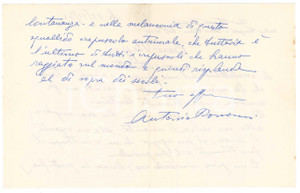 lontananza - e nella melanconia di questo
squallido crepuscolo autunnale, che tuttavia è
l'ultimo di tutti i crepuscoli che hanno
raggiato sul mondo e quindi risplende
al di sopra dei secoli.
tuo aff
Antonio